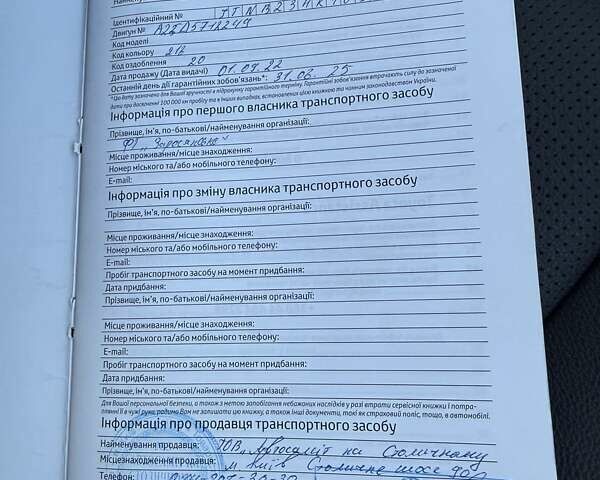 Ідентифікаційний №
Двигун № A25A5712249
Код моделі
Код кольору 212
Код оздоблення 20
Дата продажу (Дата видачі) 01.09.22
Останній день дії гарантійних зобов'язань*: 31.08.25
*Цю дату зазначено для Вашої зручності в підрахунку гарантійного терміну. Гарантійні зобов'язання втрачають силу до зазначеної
дати при досягненні 100 000 км пробігу та в інших випадках, встановлених цією книжкою та чинним законодавством України.
Інформація про першого власника транспортного засобу
Прізвище, ім'я, по-батькові/найменування організації:
Місце проживання/місце знаходження:
Номер міського та/або мобільного телефону:
E-mail:
Інформація про зміну власника транспортного засобу
Прізвище, ім'я, по-батькові/найменування організації:
Місце проживання/місце знаходження:
Номер міського та/або мобільного телефону:
E-mail:
Пробіг транспортного засобу на момент придбання:
Дата придбання:
Прізвище, ім'я, по-батькові/найменування організації:
Місце проживання/місце знаходження:
Номер міського та/або мобільного телефону:
E-mail:
Пробіг транспортного засобу на момент придбання:
Дата придбання:
Прізвище, ім'я, по-батькові/найменування організації:
Для Вашої персональної безпеки, а також з метою запобігання небажаних наслідків у разі втрати сервісної книжки і потра-
пляння її в чужі руки, радимо Вам не залишати цю книжку, а також інші документи, такі як страховий поліс, тощо, в автомобілі.
Інформація про продавця транспортного засобу
Найменування продавця: ТОВ "Автосаміт на Столичному
Місцезнаходження продавця: м. Київ Столичне шосе
Телефон: